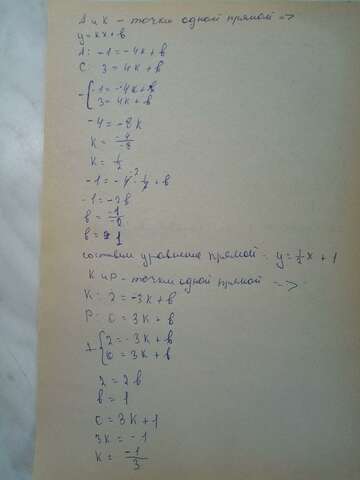 A и K - точки одной прямой =>
y=kx+b
A: -1=-4k+b
C: 3=4k+b
-{-1=-4k+b
3=4k+b
-4=-8k
k=-4/-8
k=1/2
-1=-4·1/2+b
-1=-2b
b=
b=1
составим уравнение прямой: y=1/2x+1
K и P - точки одной прямой =>
K: 2=-3k+b
P: 0=3k+b
{2=-3k+b
0=3k+b
2=2b
b=1
0=3k+1
3k=-1
k=-1/3